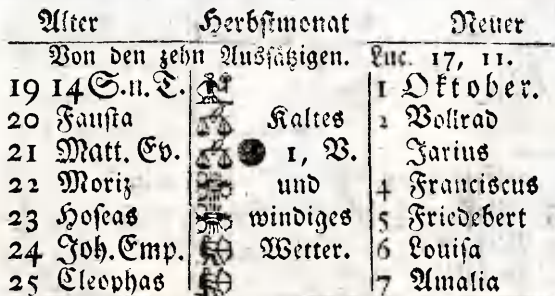 Alter Herbstmonat Neuer
Von den zehn Aussätzigen. Luc. 17, 11.
19 14 S. n. T. 1 Oktober.
20 Fausta Kaltes 2 Vollrad
21 Matt. Ev. 1, V. Jarius
22 Moriz und 4 Franciscus
23 Hoseas windiges 5 Friedebert
24 Joh. Emp. Wetter. 6 Louisa
25 Cleophas 7 Amalia